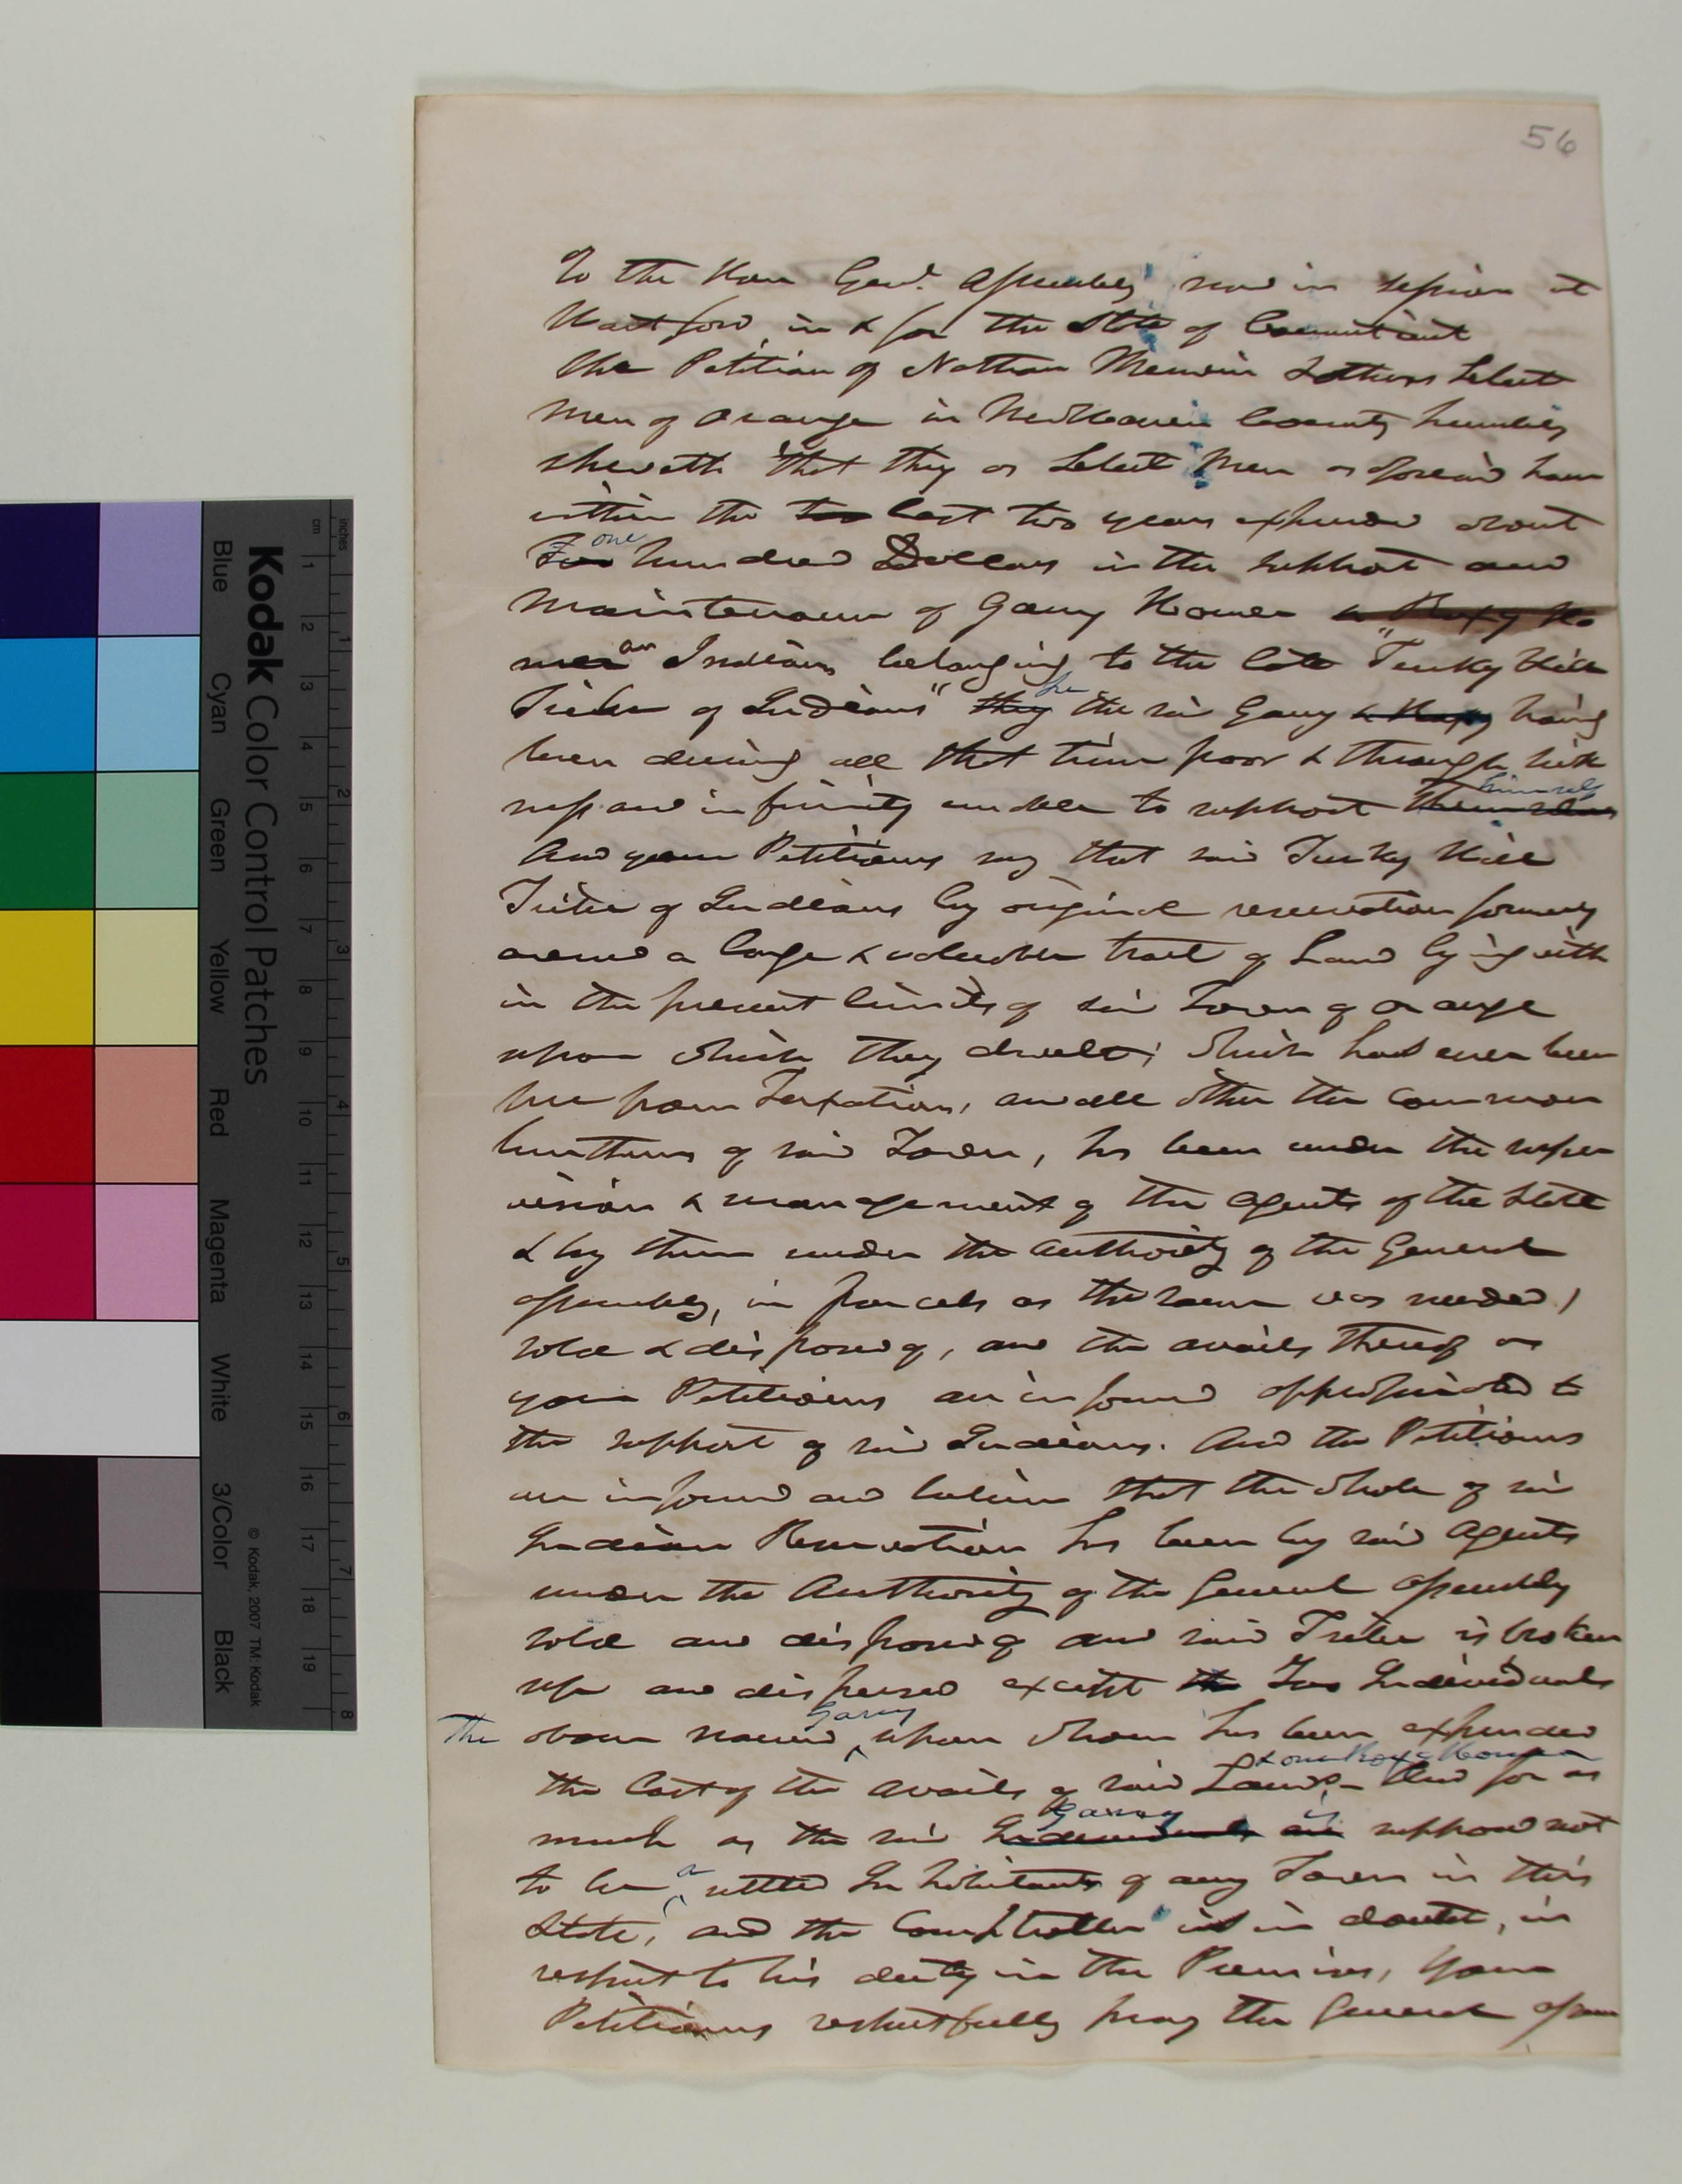 56
To the Hon Genl. Assembly now in session at
Hartford in & for the State of Connecticut
The Petition of Nathan Merwin & others Select
Men of Orange in New Haven County humbly
sheweth that they as Select Men aforesaid have
within the two last two years expended about
Two one hundred Dollars in the support and
maintenance of Garry Homer & Roxy Ho
mer an Indians belonging to the late "Turky Hill
Tribe of Indians" they he the said Garry & Roxy having
been during all that time poor & through sick
ness and infirmity unable to support themselves himself
And your Petitioners say that said Turky Hill
Tribe of Indians by original reservation formerly
owned a large & valuable tract of Land lying with
in the present limits of said Town of Orange
upon which they dwelt; which had ever been
free from Taxation, and all other the common
burthens of said Town, has been under the super
vision & management of the Agents of the State
& by them under the Authority of the General
Assembly, in parcels as the same was needed,
sold & disposed of, and the avails thereof as
your Petitioners are informed appropriated to
the support of said Indians. And the Petitioners
are informed and believe that the whole of said
Indian Reservation has been by said Agents
under the Authority of the General Assembly
sold and disposed of and said Tribe is broken
up and dispersed except the Two Individuals
The above named Garry upon whom has been expended
& one Roxy Homer
the last of the avails of said Lands And for as
much as the said Individuals are Garry is supposed not
to be a settled Inhabitants of any Town in this
State, and the Comptroller is in doubt, in
respect to his duty in the Premises, Your
Petitioners respectfully pray the General Assem
Kodak Color Control Patches
Blue Cyan Green Yellow Red Magenta White 3/Color Black
© Kodak, 2007 TM: Kodak
inches 1 2 3 4 5 6 7 8
cm 1 2 3 4 5 6 7 8 9 10 11 12 13 14 15 16 17 18 19